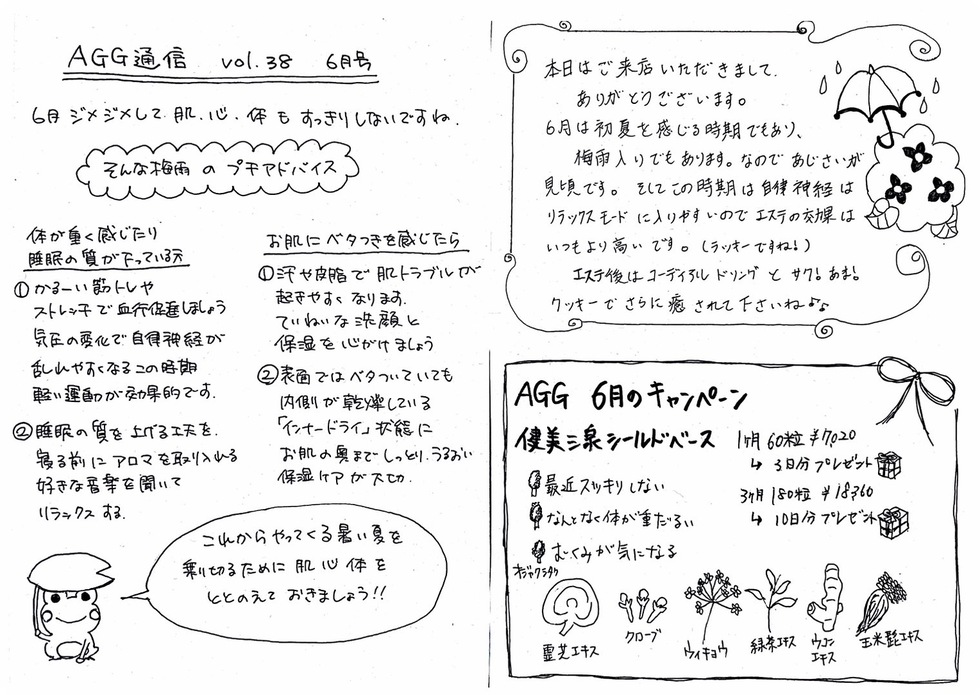 AGG通信 vol.38 6月号
6月 ジメジメして 肌、心、体も すっきりしないですね。
そんな梅雨 の プチアドバイス
体が重く感じたり
睡眠の質が下っている方
①かるーい筋トレや
ストレッチで血行促進しましょう
気圧の変化で自律神経が
乱れやすくなるこの時期
軽い運動が効果的です。
②睡眠の質を上げる工夫を。
寝る前にアロマを取り入れる
好きな音楽を聞いて
リラックスする。
お肌にベタつきを感じたら
①汗や皮脂で肌トラブルが
起きやすくなります。
ていねいな洗顔と
保湿を心がけましょう
②表面ではベタついていても
内側が乾燥している
「インナードライ」状態に
お肌の奥までしっとり、うるおい
保湿ケアが大切。
これからやってくる暑い夏を
乗り切るために 肌 心 体を
ととのえて おきましょう!!
本日はご来店いただきまして、
ありがとうございます。
6月は初夏を感じる時期でもあり、
梅雨入りでもあります。なのであじさいが
見頃です。そしてこの時期は自律神経は
リラックスモードに入りやすいのでエステの効果は
いつもより高いです。(ラッキーですね!)
エステ後はコーディアルドリンクとサク!あま!
クッキーでさらに癒されて下さいね♪♪
AGG 6月のキャンペーン
健美三泉シールドベース 1ヶ月 60粒 ¥7,020
↳ 3日分プレゼント
3ヶ月 180粒 ¥18,360
↳ 10日分プレゼント
最近スッキリしない
なんとなく体が重だるい
むくみが気になる
霊芝エキス
クローブ
ウイキョウ
緑茶エキス
ウコン
エキス
玉米髭エキス